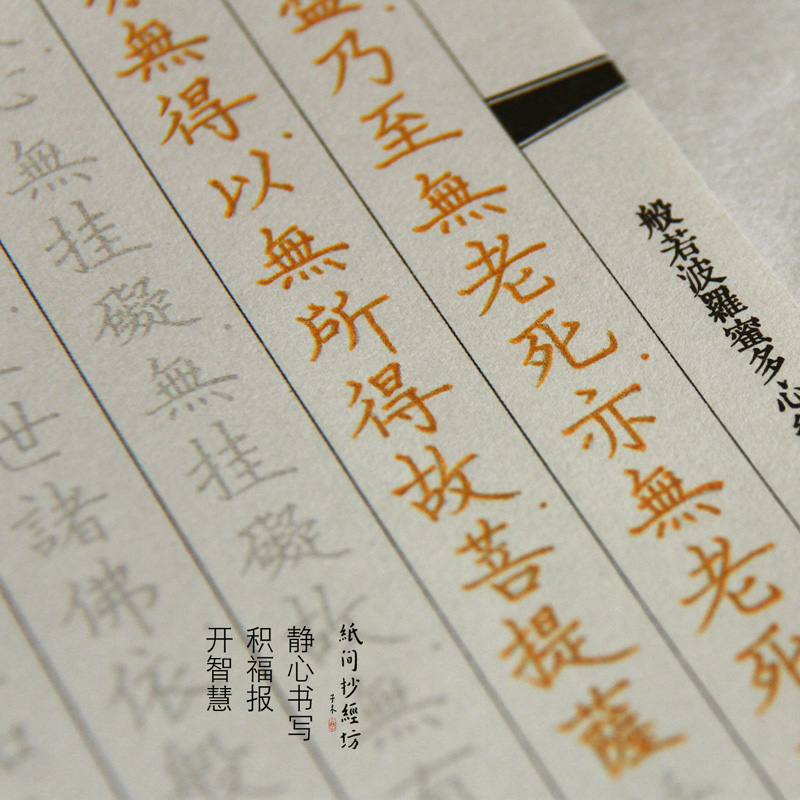 般若波羅蜜多心
盡乃至無老死亦無老死
無得以無所得故菩提薩
心無挂礙無挂礙故無有
世諸佛依般
紙间抄經坊
静心书写
积福报
开智慧